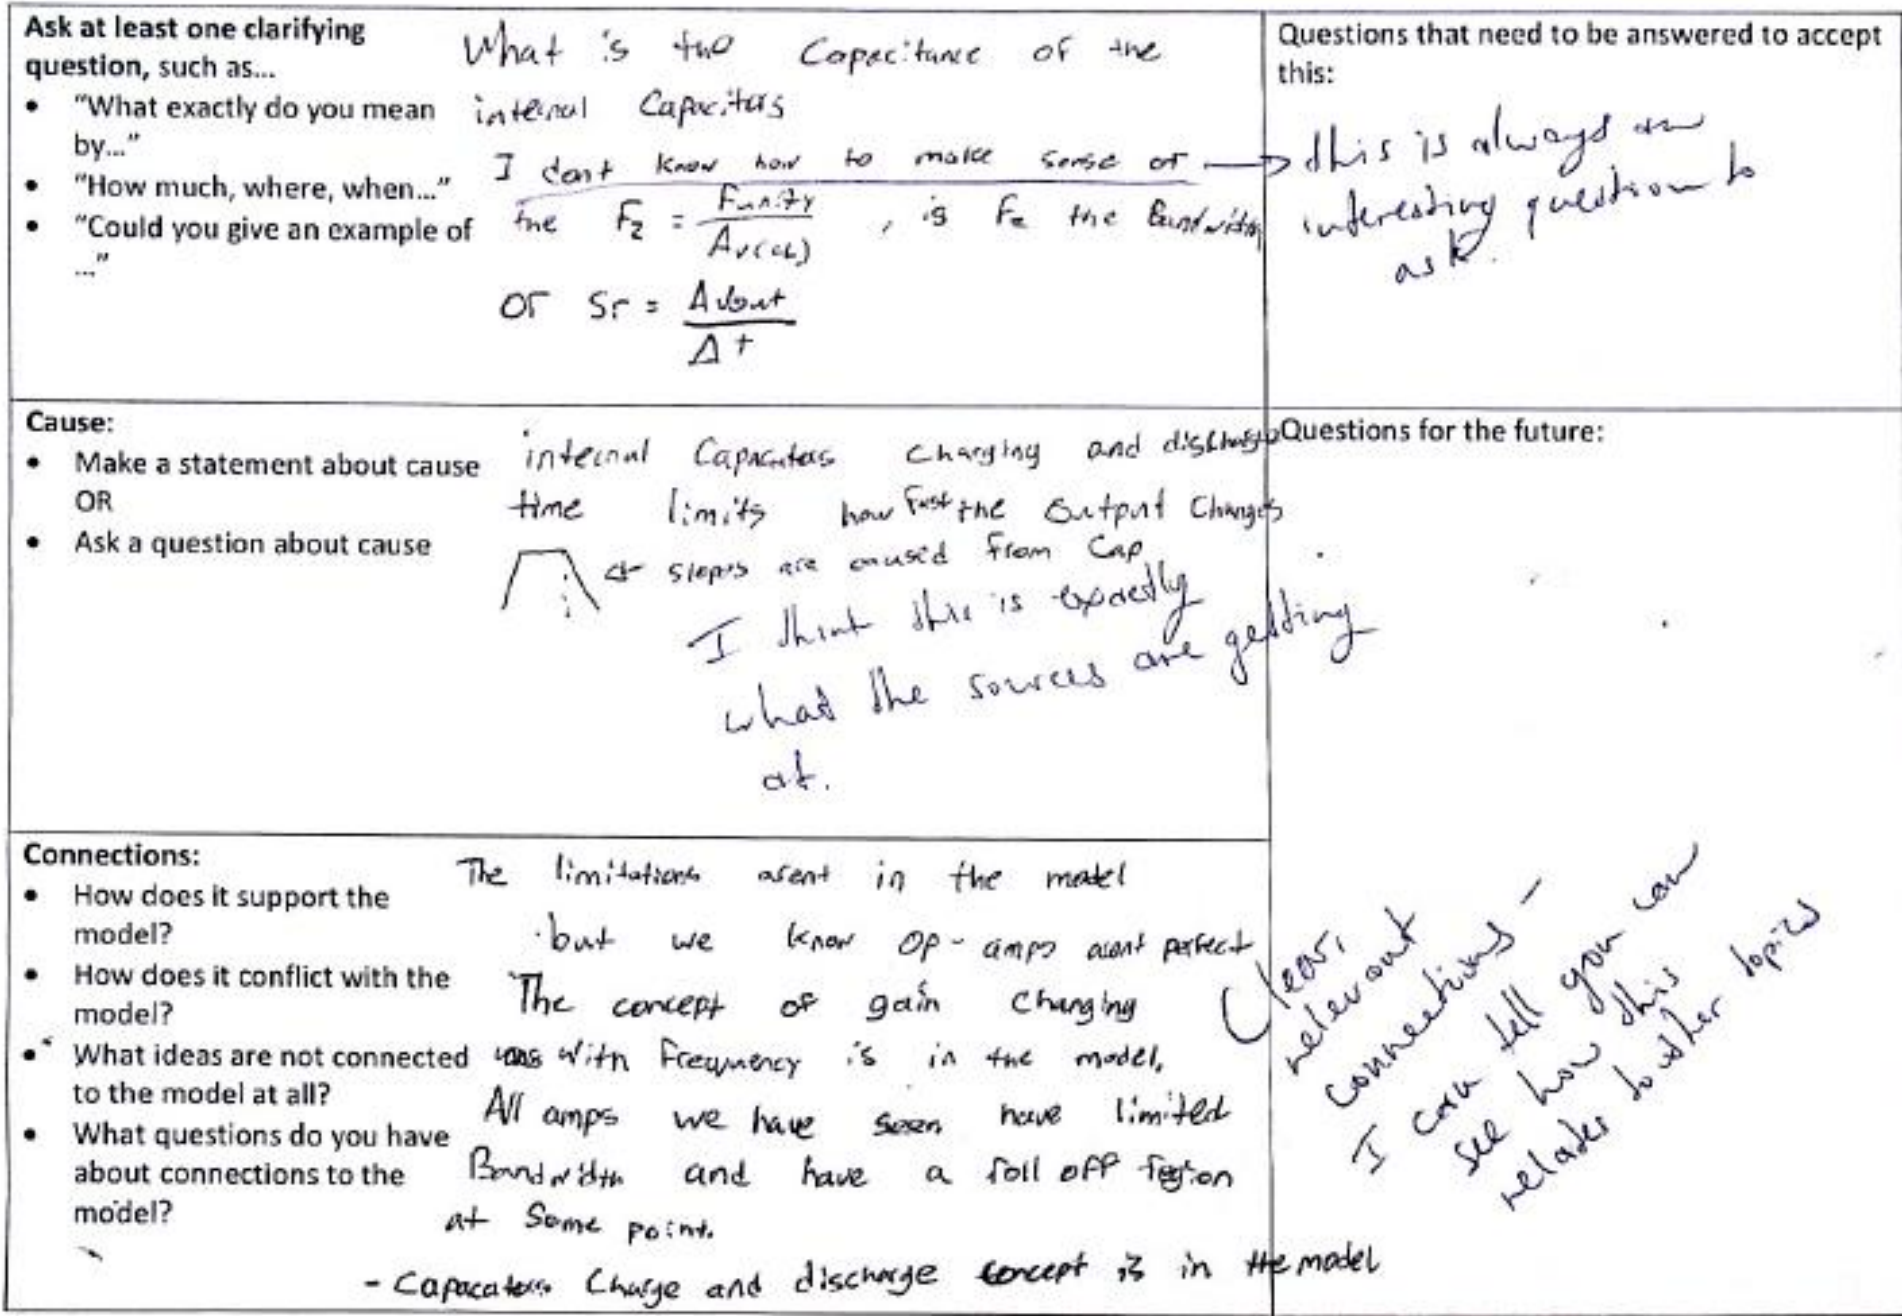 Ask at least one clarifying
question, such as...
• "What exactly do you mean
by..."
• "How much, where, when..."
• "Could you give an example of
..."
What is the Capacitance of the
internal Capacitors
I dont know how to make sense of
the F2 = Funity / Av(cl) , is F2 the Bandwidth
or Sr = Δvout / Δt
Questions that need to be answered to accept
this:
this is always an
interesting question to
ask.
Cause:
• Make a statement about cause
OR
• Ask a question about cause
internal Capacators Charging and discharge
time limits how Fast the output Changes
slopes are caused from Cap
I think this is exactly
what the sources are getting
at.
Questions for the future:
Connections:
• How does it support the
model?
• How does it conflict with the
model?
• What ideas are not connected
to the model at all?
• What questions do you have
about connections to the
model?
The limitations arent in the model
but we know op-amps arent perfect
The concept of gain Changing
with Frequency is in the model,
All amps we have seen have limited
Bandwidth and have a roll off region
at Some point.
- Capacators Charge and discharge concept is in the model
Clear,
relevant
connections -
I can tell you can
see how this
relates to other topics